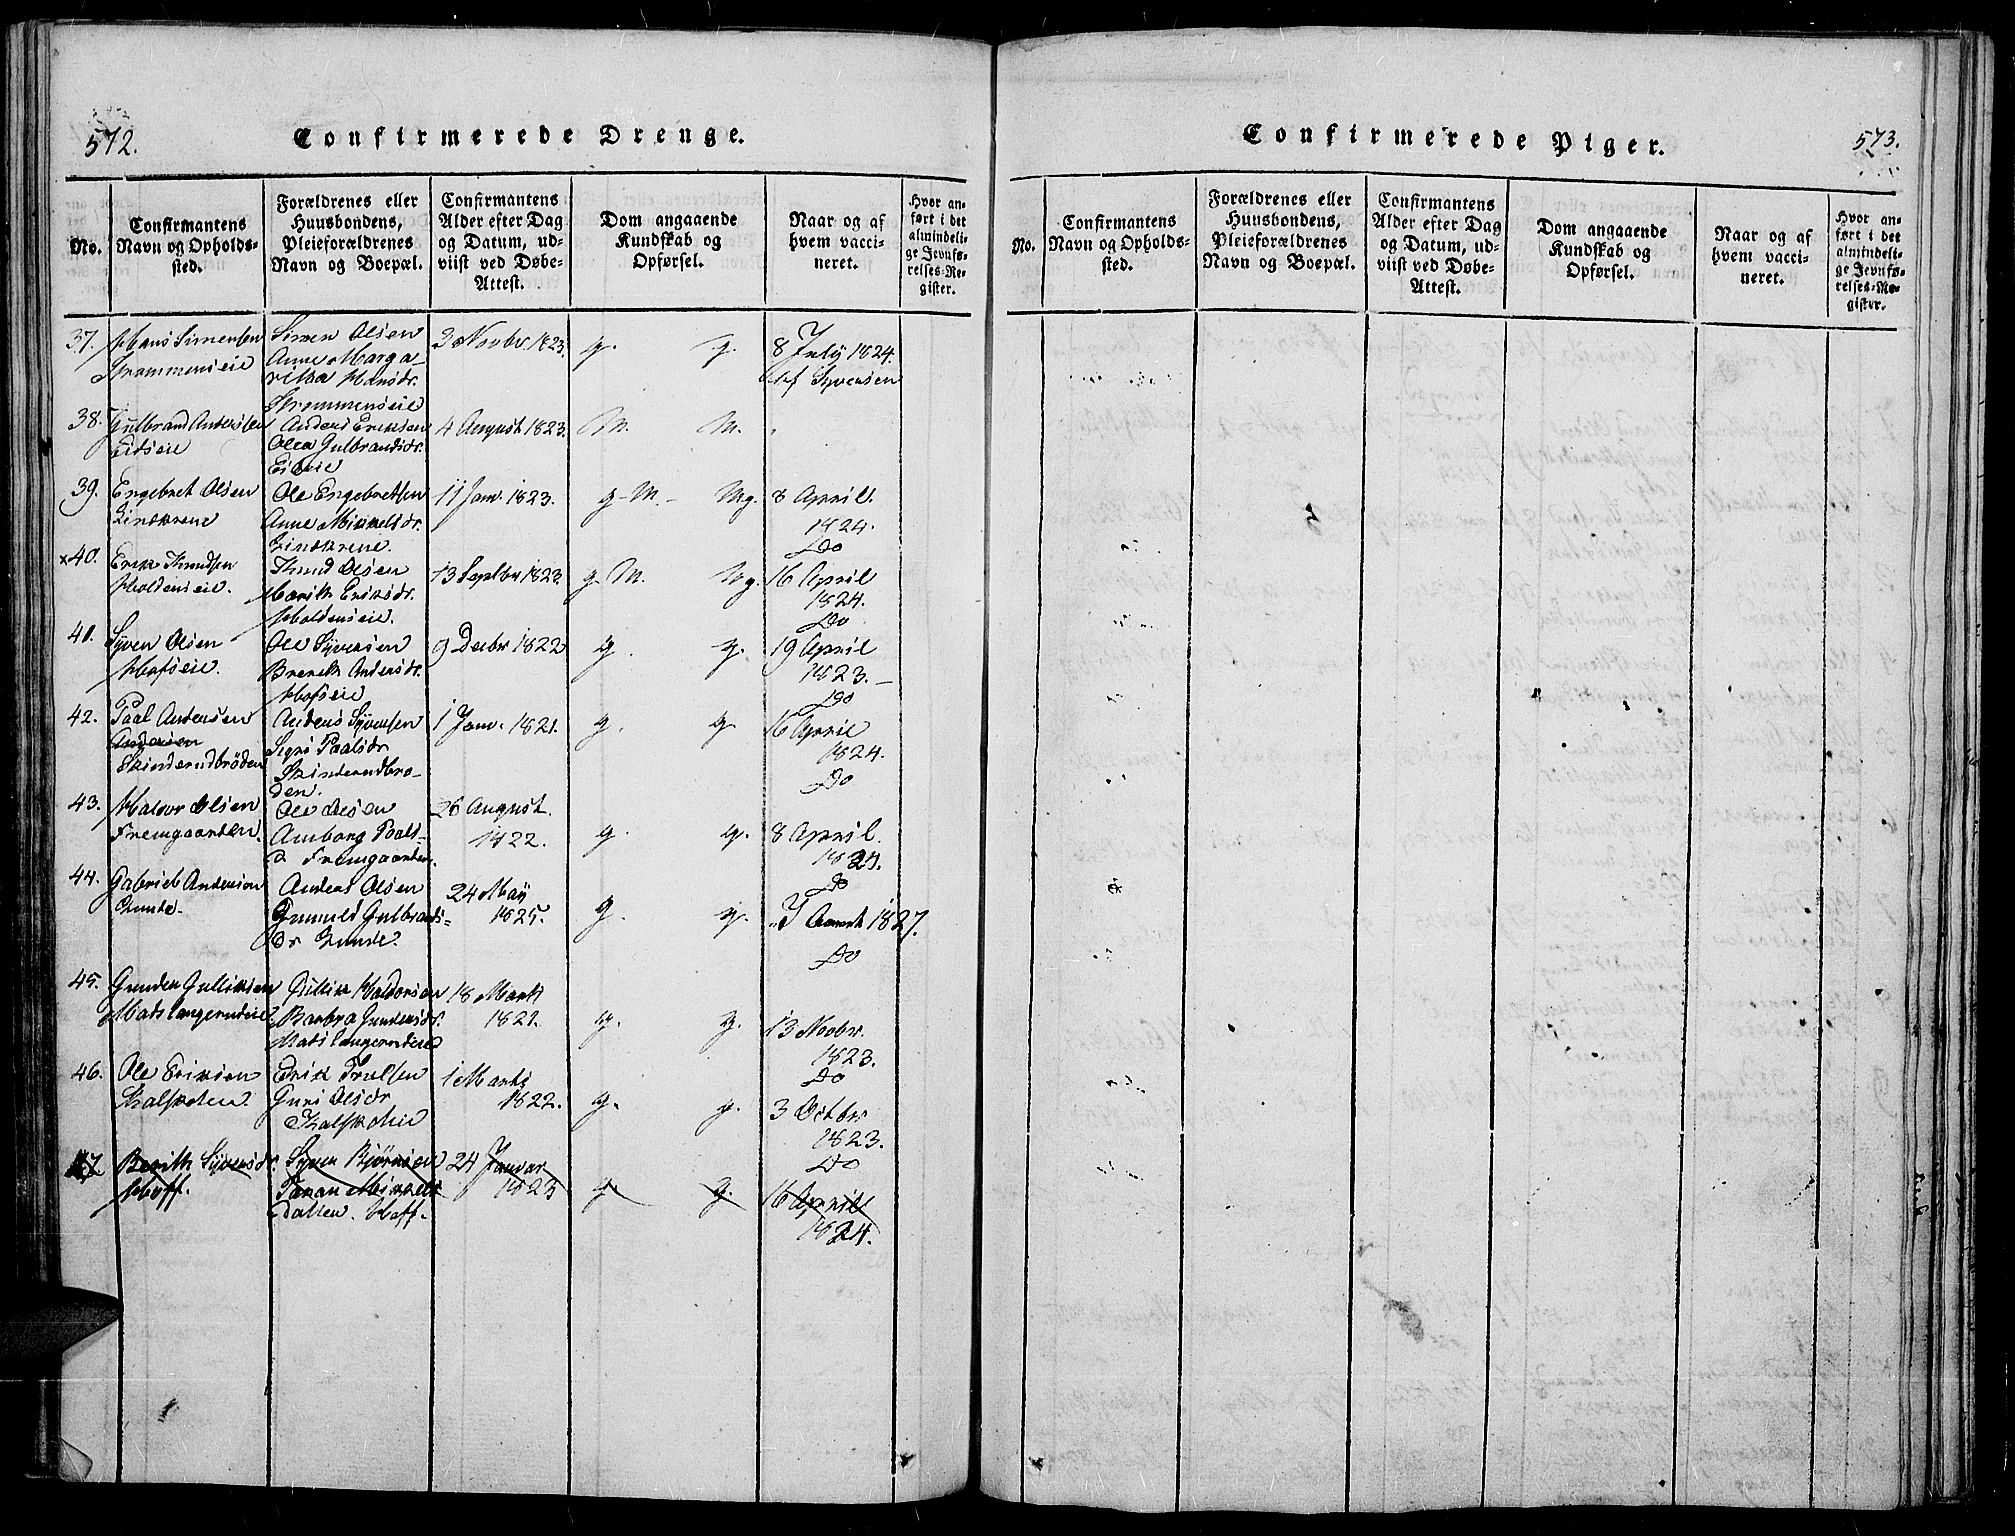 572.
Confirmerede Drenge.
No.
Confirmantens
Navn og Opholds-
sted.
Forældrenes eller
Huusbondens,
Pleieforældrenes
Navn og Boepæl.
Confirmantens
Alder efter Dag
og Datum, ud-
viist ved Døbe-
Attest.
Dom angaaende
Kundskab og
Opførsel.
Naar og af
hvem vacci-
neret.
Hvor an-
ført i det
almindeli-
ge Jevnfø-
relses-Re-
gister.
37. Hans Simensen
Strommenseie
Simen Olsen
Anne Marga-
ritha Hansdr.
Strommenseie
3 Novbr 1823.
g. g.
8 July 1824.
Olof Syversen
38. Gulbrand Andersen
Eidseie
Anders Eriksen
Olea Gulbrandsdr.
Eidseie
4 August 1823.
M. M.
39. Engebret Olsen
Ole Engebretsen
Anne Mikkelsdr.
11 Janr. 1823.
g-M- Mg.
8 April
1824.
Do
x40. Erik Knudsen
Holdenseie.
Knud Olsen
Marith Eriksdr.
Holdenseie.
13 Septbr 1823
g. M. Mg.
16 April
1824.
Do
41. Syver Olsen
Hofseie.
Ole Syversen
Bereth Andersdr.
Hofseie
9 Decbr 1822
g. g.
19 April
1823.-
Do
42. Paal Andersen
Andersen
Skinderudbrøden
Anders Syversen
Sigri Paalsdr
Skinderudbrø-
den.
1 Janr. 1821.
g. g.
16 April
1824.
Do
43. Halvor Olsen
Fremgaarden.
Ole Olsen
Amborg Paals-
d Fremgaarden.
26 August.
1822.
g. g.
8 April.
1824.
Do
44. Gabriel Andersen
Lunde.
Anders Olsen
Gunnild Gulbrands-
dr Lunde.
24 May
1825.
g. g.
1827.
Do
45. Gunder Gulliksen
Madslangerudeie.
Gullik Halvorsen
Barbra Gundersdr.
Madslangerudeie
18 Marts
1821.
g. g.
13 Novbr.
1823.
Do
46. Ole Eriksen
Erik Trulsen
Guri Olsdr
1 Marts
1822.
g. g.
3 Octbr
1823.
Do
47 Berith Syversdr.
Hoff.
Syver Bjørnsen
Taran Mikkels
datter. Hoff.
24 Januar
1823
g. g.
16 April
1824.
Confirmerede Piger.
573.
No.
Confirmantens
Navn og Opholds-
sted.
Forældrenes eller
Huusbondens,
Pleieforældrenes
Navn og Boepæl.
Confirmantens
Alder efter Dag
og Datum, ud-
viist ved Døbe-
Attest.
Dom angaaende
Kundskab og
Opførsel.
Naar og af
hvem vacci-
neret.
Hvor an-
ført i det
almindeli-
ge Jevnfø-
relses-Re-
gister.